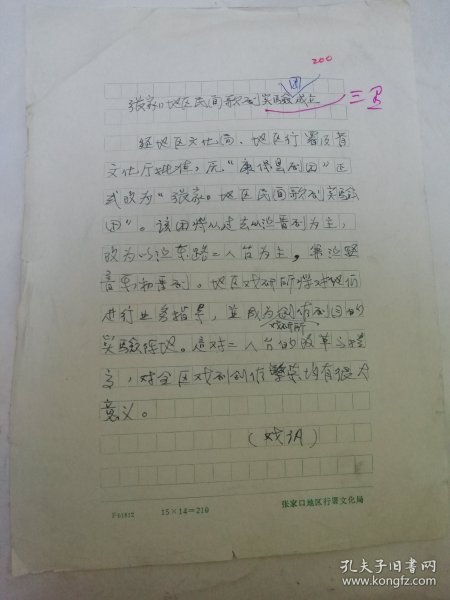 200
团
张家口地区民间歌剧实验成立
三B
经地区文化局、地区行署及省
文化厅批准,原“康保县剧团”正
式改为“张家口地区民间歌剧实验
团”。该团将从过去以演晋剧为主,
改为以演东路二人台为主,兼演
晋剧。地区戏研所将对他们
进行业务指导,并成为创作剧目的
戏研所
实验阵地。这对二人台的改革与提
高,对全区戏剧创作繁荣均有很大
意义。
(戏讯)
F61812
15×14=210
张家口地区行署文化局
孔夫子旧书网
www.kongfz.com